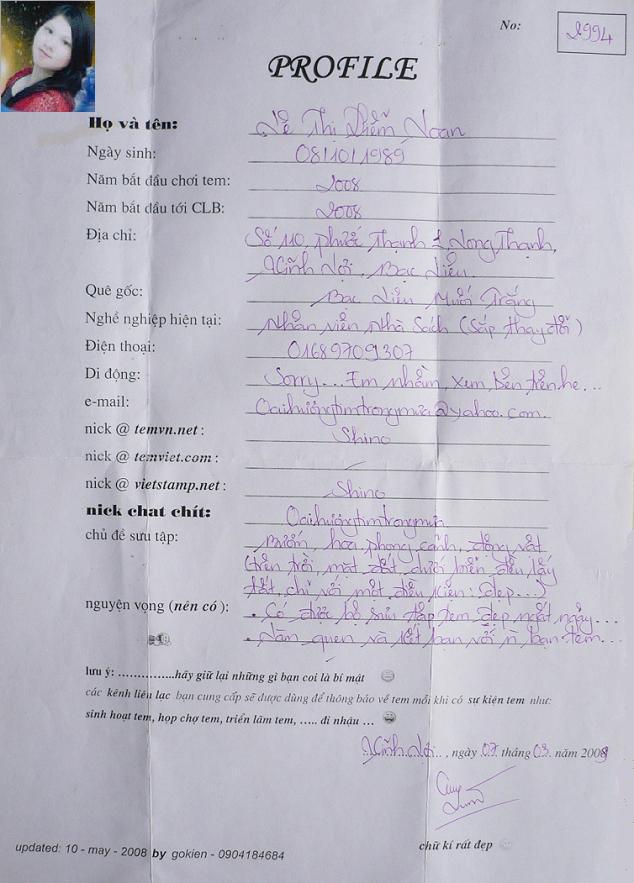 No: 2994
PROFILE
Họ và tên: Lê Thị Diễm Loan
Ngày sinh: 08/10/1989
Năm bắt đầu chơi tem: 2008
Năm bắt đầu tới CLB: 2008
Địa chỉ: Số 110, phước Thạnh 1, Long Thạnh,
Vĩnh Lợi, Bạc Liêu.
Quê gốc: Bạc Liêu Muối Trắng
Nghề nghiệp hiện tại: Nhân viên Nhà Sách (Sắp thay đổi)
Điện thoại: 01689709307
Di động: Sorry... Em nhầm, xem bên trên he...
e-mail: Oaihuongtimtrongmua@yahoo.com.
nick @ temvn.net : Shino
nick @ temviet.com :
nick @ vietstamp.net : Shino
nick chat chít: Oaihuongtimtrongmua
chủ đề sưu tập: Bướm, hoa, phong cảnh, động vật
(trên trời, mặt đất, dưới biển đều lấy
tất, chỉ với một điều kiện: đẹp...)
nguyện vọng (nén có ): . Có được bộ sưu tập tem đẹp ngất ngây...
. Làm quen và kết bạn với n bạn tem...
lưu ý: ................hãy giữ lại những gì bạn coi là bí mật
các kênh liên lạc bạn cung cấp sẽ được dùng để thông báo về tem mỗi khi có sự kiện tem như:
sinh hoạt tem, họp chợ tem, triển lãm tem, ..... đi nhậu ...
Vĩnh Lợi , ngày 07 tháng 03 năm 2009
chữ kí rất đẹp
updated: 10 - may - 2008 by gokien - 0904184684